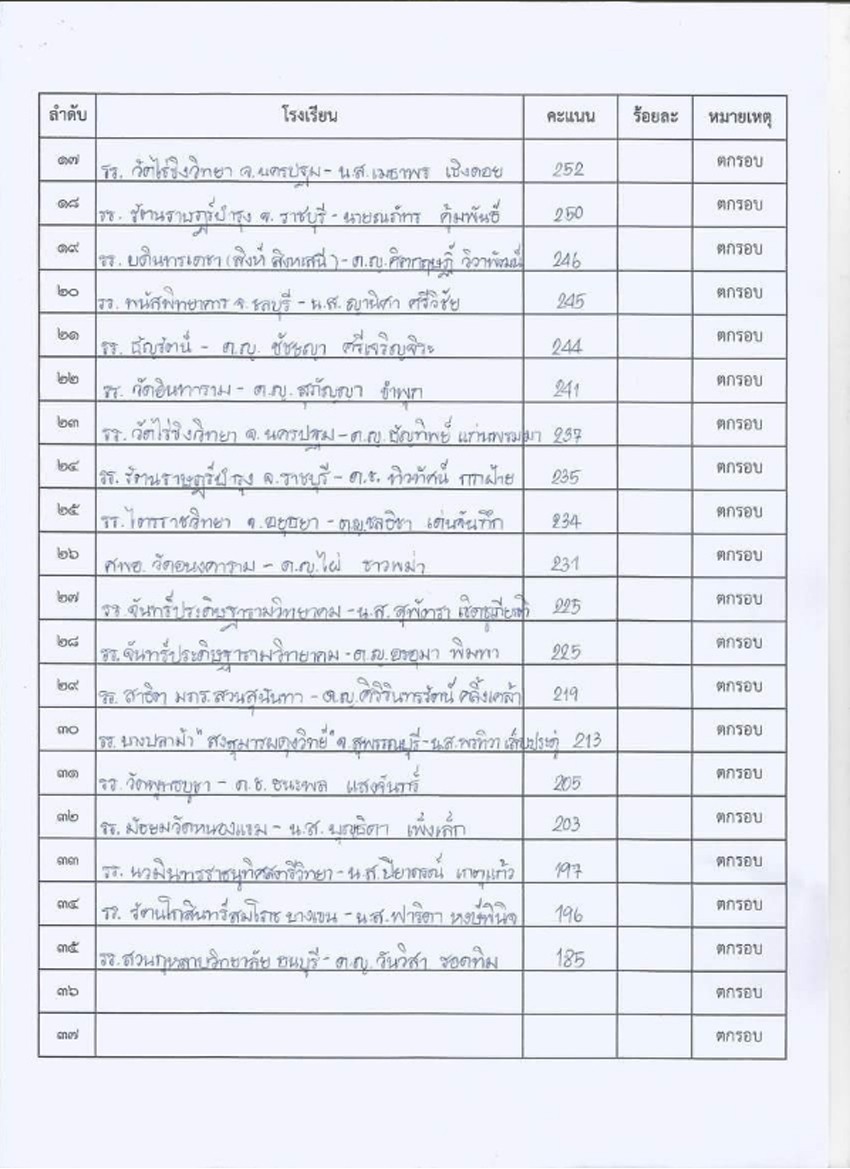 ลำดับ โรงเรียน คะแนน ร้อยละ หมายเหตุ
๑๗ รร. วัดไร่ขิงวิทยา จ.นครปฐม - น.ส.เมธาพร เชิงดอย 252 ตกรอบ
๑๘ รร. รัตนราษฎร์บำรุง จ. ราชบุรี - นายณภัทร คุ้มพันธ์ 250 ตกรอบ
๑๙ รร. บดินทรเดชา (สิงห์ สิงหเสนี) - ด.ญ. วิวาพัฒน์ 246 ตกรอบ
๒๐ รร. พนัสพิทยาคาร จ.ชลบุรี - น.ส. ญานิศา ศรีวิชัย 245 ตกรอบ
๒๑ รร. ธัญรัตน์ - ด.ญ. ชัชญญา ศรีเจริญจิระ 244 ตกรอบ
๒๒ รร. วัดอินทาราม - ด.ญ. สุกัญญา 241 ตกรอบ
๒๓ รร. วัดไร่ขิงวิทยา จ.นครปฐม - ด.ญ. ธัญทิพย์ แก่นพรมมา 237 ตกรอบ
๒๔ รร. รัตนราษฎร์บำรุง จ.ราชบุรี - ด.ช. ทิวทัศน์ กกฝ้าย 235 ตกรอบ
๒๕ รร. ไตรราชวิทยา จ.อยุธยา - ด.ญ.ชลธิชา เด่นจันทึก 234 ตกรอบ
๒๖ ศพอ. วัดอนงคาราม - ด.ญ.ไผ่ ชาวพม่า 231 ตกรอบ
๒๗ รร.จันทร์ประดิษฐารามวิทยาคม - น.ส. สุพัตรา 225 ตกรอบ
๒๘ รร.จันทร์ประดิษฐารามวิทยาคม - ด.ญ.อรอุมา พิมทา 225 ตกรอบ
๒๙ รร. สาธิต มภร.สวนสุนันทา - ด.ญ.ศิวิรินทรรัตน์ คลิ้งเคล้า 219 ตกรอบ
๓๐ รร. บางปลาม้า "สูงสุมารผดุงวิทย์" จ.สุพรรณบุรี - น.ส.พรทิวา 213 ตกรอบ
๓๑ รร. วัดพุทธบูชา - ด.ช. ธนะพล แสงจันทร์ 205 ตกรอบ
๓๒ รร. มัธยมวัดหนองแขม - น.ส. บุญธิดา เพ็งเล็ก 203 ตกรอบ
๓๓ รร. นวมินทราชนูทิศสตรีวิทยา - น.ส.ปิยาภรณ์ เกตุแก้ว 197 ตกรอบ
๓๔ รร. รัตนโกสินทร์สมโภช บางเขน - น.ส.ฟาริดา หงษ์พินิจ 196 ตกรอบ
๓๕ รร.สวนกุหลาบวิทยาลัย ธนบุรี - ด.ญ. วันวิสา ชอดทิม 185 ตกรอบ
๓๖ ตกรอบ
๓๗ ตกรอบ